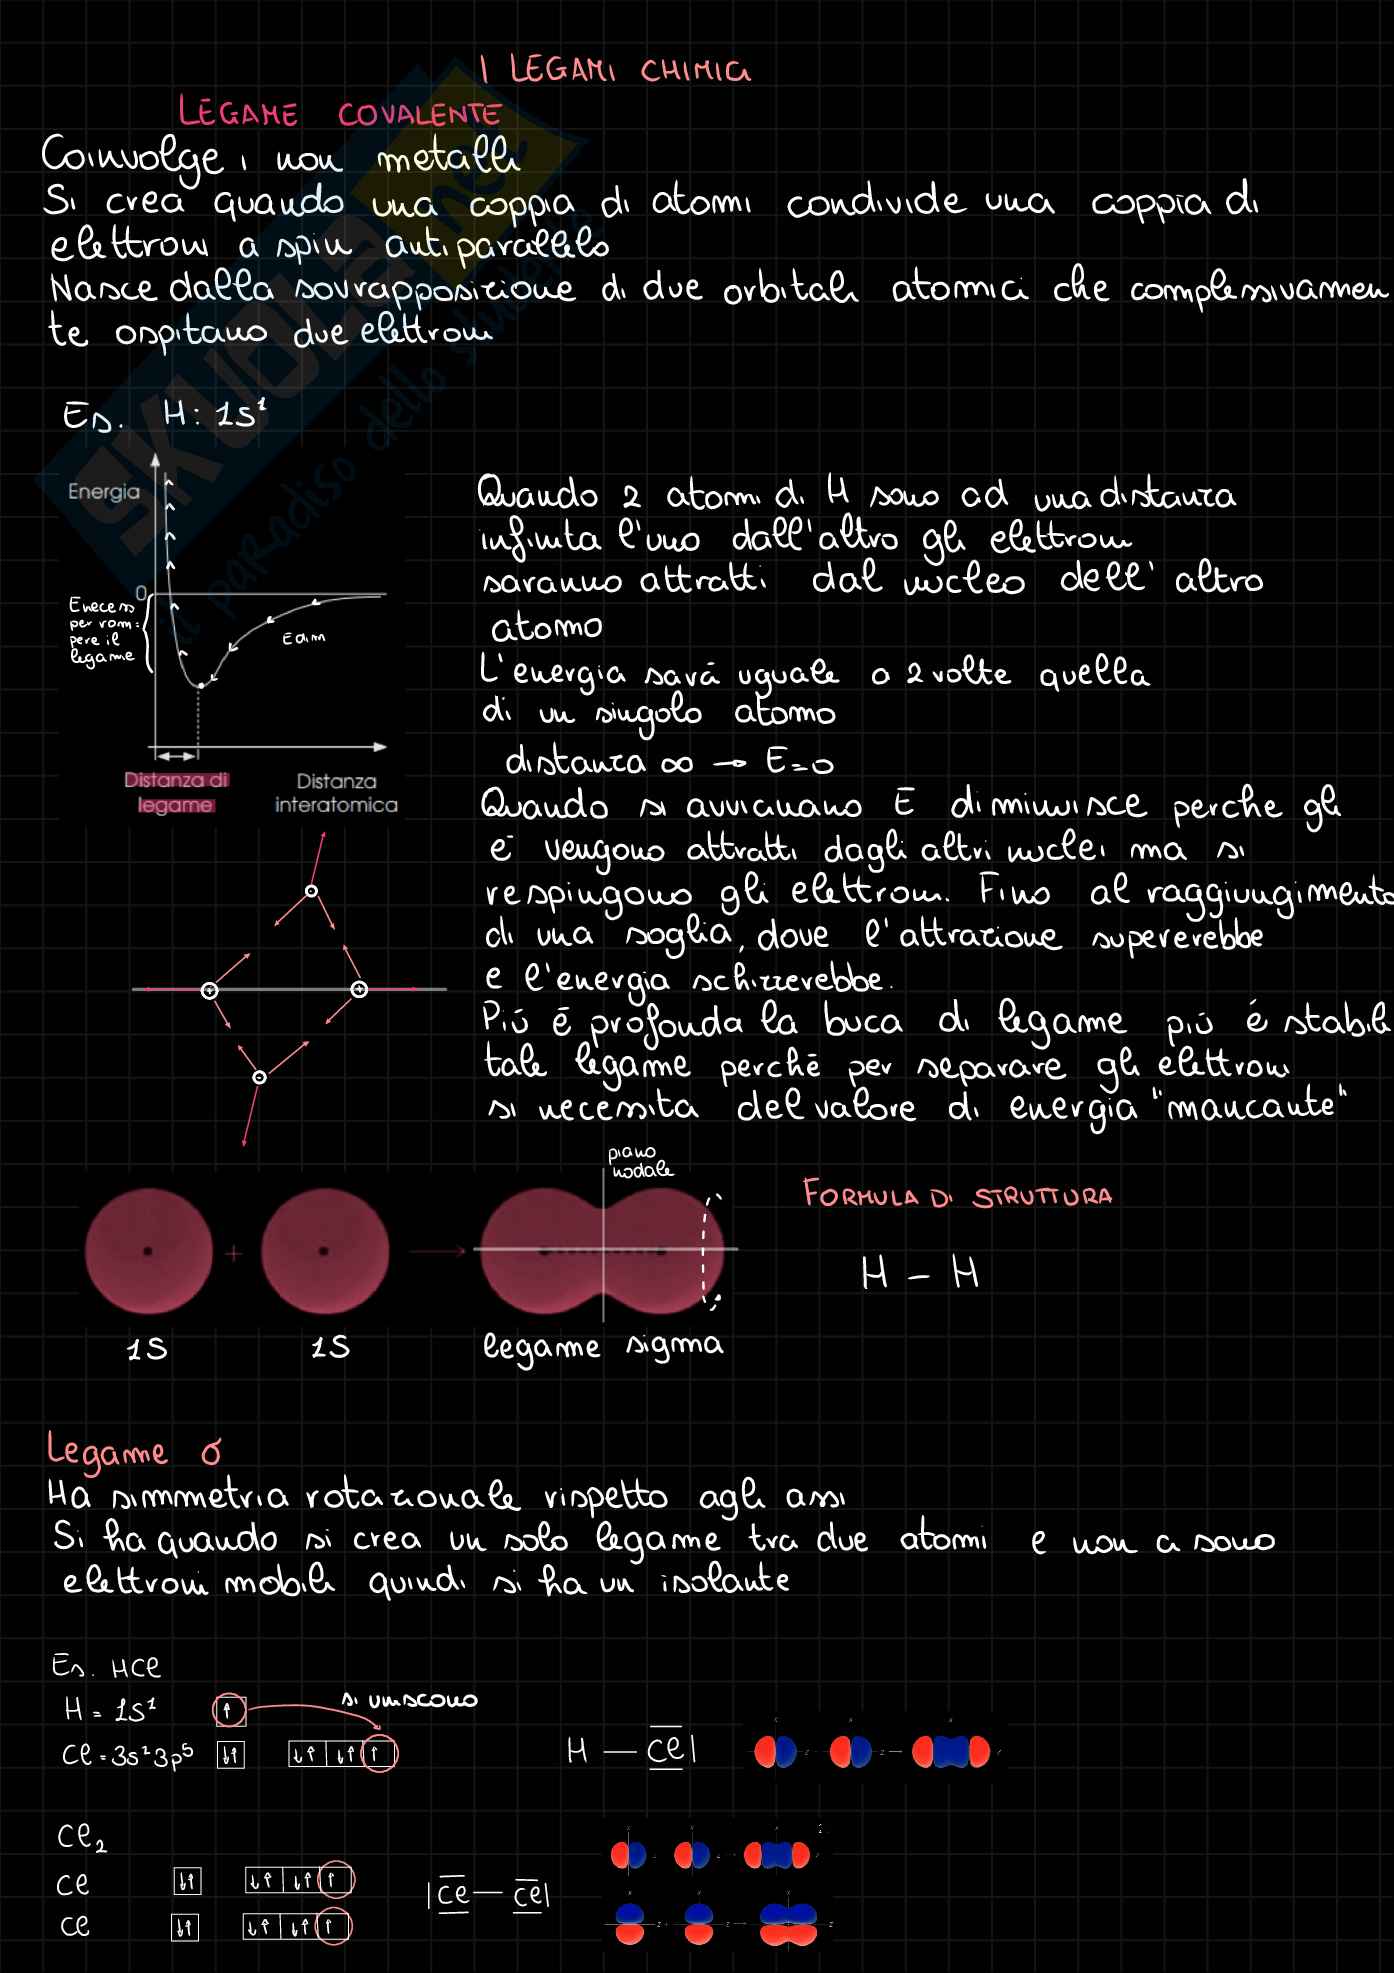 I LEGAMI CHIMICI
LEGAME COVALENTE
Coinvolge i non metalli
Si crea quando una coppia di atomi condivide una coppia di
elettroni a spin antiparallelo
Nasce dalla sovrapposizione di due orbitali atomici che complessivamen
te ospitano due elettroni
Es. H: 1s¹
Energia
0
E necess
per rom=
pere il
legame
E dim
Distanza di
legame
Distanza
interatomica
Quando 2 atomi di H sono ad una distanza
infinita l'uno dall'altro gli elettroni
saranno attratti dal nucleo dell'altro
atomo
L'energia sarà uguale a 2 volte quella
di un singolo atomo
distanza ∞ → E=0
Quando si avvicinano E diminuisce perche gli
e⁻ vengono attratti dagli altri nuclei ma si
respingono gli elettroni. Fino al raggiungimento
di una soglia, dove l'attrazione supererebbe
e l'energia schizzerebbe.
Più è profonda la buca di legame più è stabile
tale legame perchè per separare gli elettroni
si necessita del valore di energia "mancante"
piano
nodale
+
1S
1S
legame sigma
FORMULA DI STRUTTURA
H – H
Legame σ
Ha simmetria rotazionale rispetto agli assi
Si ha quando si crea un solo legame tra due atomi e non ci sono
elettroni mobili quindi si ha un isolante
Es. HCl
H = 1S¹
si uniscono
Cl = 3s²3p⁵
H — Cl|
Cl₂
Cl
Cl
|Cl — Cl|
SKUOLA.net
il paradiso dello studente